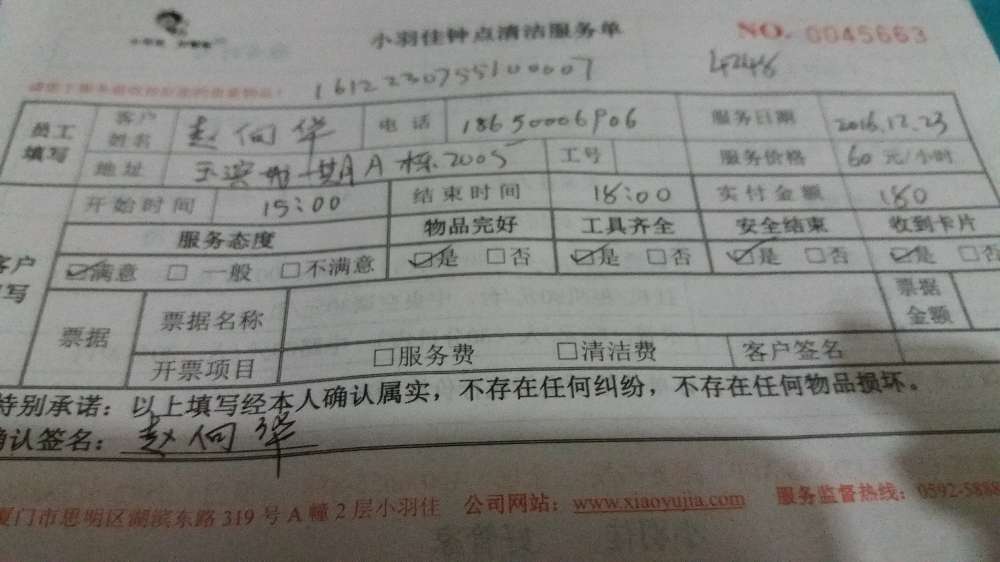 小羽佳钟点清洁服务单 NO. 0045663
1612230755100007 4248
员工填写 客户姓名 赵何华 电话 18650006906 服务日期 2016.12.23
地址 一期A栋.2005 工号 服务价格 60元/小时
开始时间 15:00 结束时间 18:00 实付金额 180
服务态度 物品完好 工具齐全 安全结束 收到卡片
☑满意 □一般 □不满意 ☑是 □否 ☑是 □否 ☑是 □否 ☑是 □否
票据 票据名称 票据金额
开票项目 □服务费 □清洁费 客户签名
特别承诺：以上填写经本人确认属实，不存在任何纠纷，不存在任何物品损坏。
确认签名：赵何华
厦门市思明区湖滨东路319号A幢2层小羽佳 公司网站：www.xiaoyujia.com 服务监督热线：0592-5888